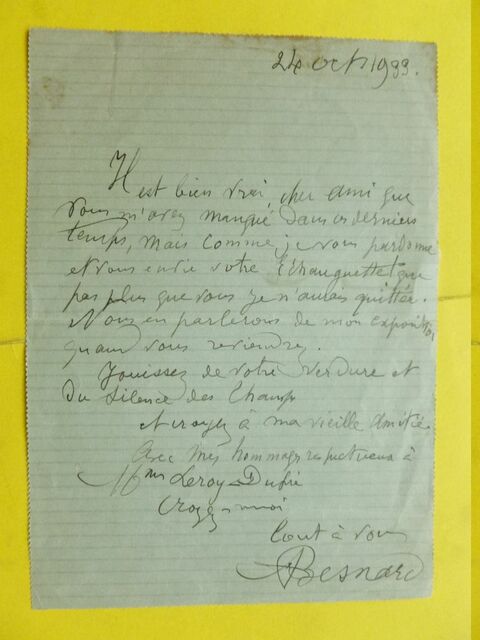 24 oct 1933.
Il est bien vrai, cher ami que
vous m'avez manqué dans ces derniers
temps, mais comme je vous pardonne
et vous envie votre Echauguette que
pas plus que vous je n'aurais quittée.
Nous en parlerons de mon exposition
quand vous reviendrez.
Jouissez de votre verdure et
du silence des champs
et croyez à ma vieille amitié
Avec mes hommages respectueux à
Mme Leroy-Dupré
Croyez moi
tout à vous
ABesnard